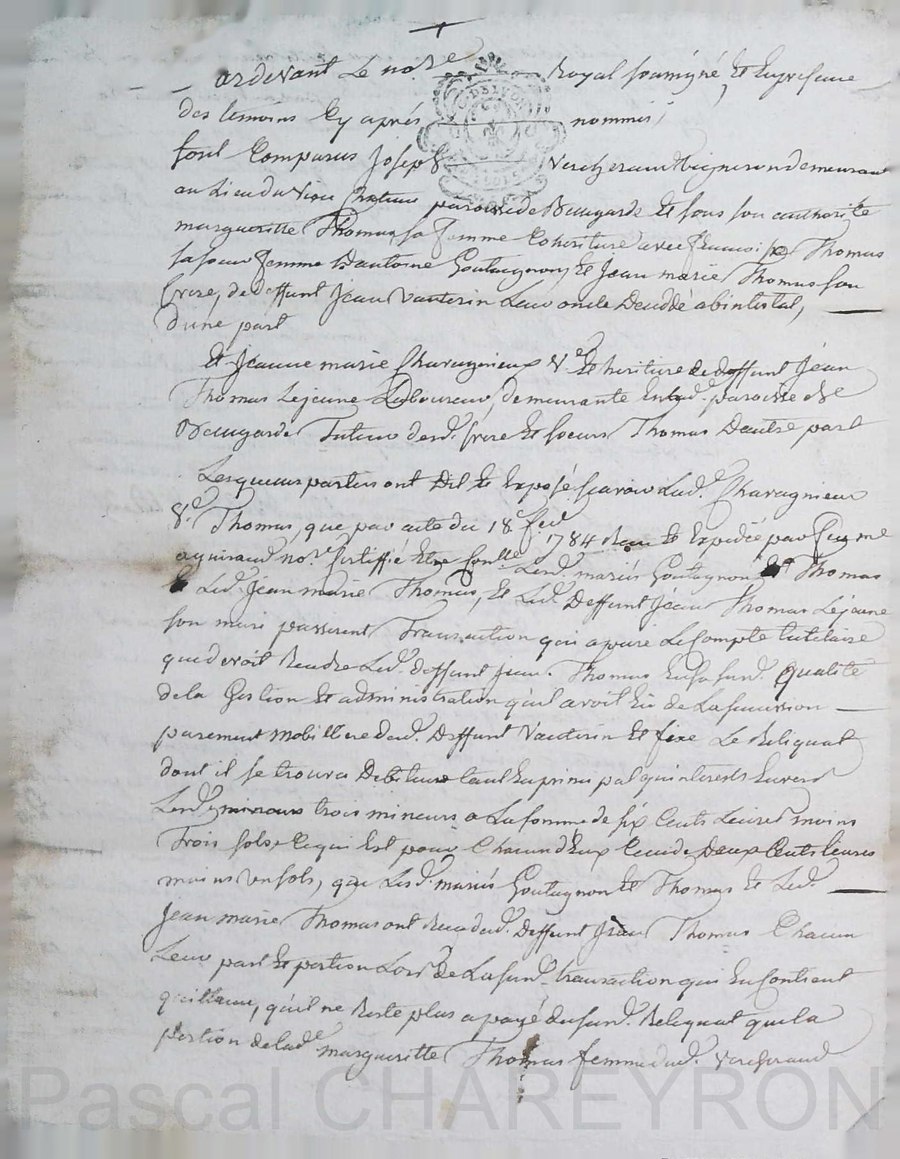 ardevant Le no.re Royal soussigné, Et En presence
des temoins Cy après nommés,
sont Comparus Joseph Vercherand Vigneron demeurant
au Lieu du vieux Chateau paroisse de Beaugarde Et sous son authorité
margueritte Thomas, sa femme Coheritiere avec francoise Thomas
sa soeur femme D'antoine Goutagnon, Et Jean marie Thomas son
frere, de deffunt Jean Vauterin Leur oncle Decedé abintestat,
d'une part
Et Jeanne marie Charagnieux V.e Et heritiere de deffunt Jean
Thomas Lejeune Laboureur, demeurante En lad. paroisse de
Beaugarde Tuteur desd. frere Et soeurs Thomas D'autre part
Lesquelles parties ont Dit Et Exposé scavoir Lad.e Charagnieux
V.e Thomas, que par acte du 18 fev. 1784 Recu Et Expedié par
no.re Lesd. mariés Goutagnon Et Thomas
Et Led. Jean marie Thomas, Et Led. Deffunt Jean Thomas Lejeune
son mari passerent Transaction qui apure Le Compte tutelaire
que devoit Rendre Led. deffunt Jean Thomas En sa susd. qualité
de la Gestion Et administration qu'il avoit Eu de La succession
purement Mobilliere dud. Deffunt Vauterin Et fixe Le Reliquat
dont il se trouva Debiteur tant En principal qu'interets Envers
Lesd. trois mineurs a La somme de six Cents Livres moins
Trois sols, Ce qui Est pour Chacun d'Eux Celle de Deux Cents Livres
moins un sols, que Lesd. mariés Goutagnon Et Thomas Et Led.
Jean marie Thomas ont Recu dud. Deffunt Jean Thomas Chacun
Leur part Et portion Lors de La susd. transaction qui En Contient
quittance, qu'il ne Reste plus a payé du susd. Reliquat que la
portion de lad.e margueritte Thomas femme dud. Vercherand
Pascal CHAREYRON